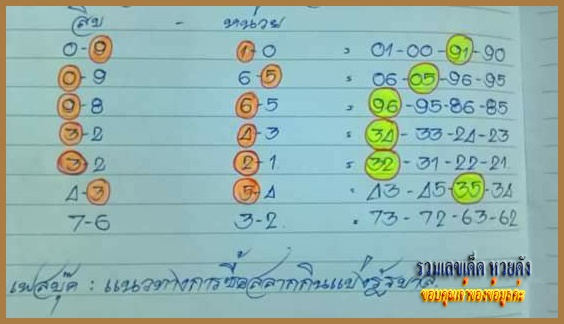 สิบ - หน่วย
0-9 1-0 = 01-00-91-90
0-9 6-5 = 06-05-96-95
9-8 6-5 = 96-95-86-85
3-2 4-3 = 34-33-24-23
3-2 2-1 = 32-31-22-21
4-3 5-4 = 43-45-35-34
7-6 3-2 = 73-72-63-62
เฟสบุ๊ค : แนวทางการซื้อสลากกินแบ่งรัฐบาล
รวมเลขเด็ด หวยดัง
ขอบคุณเจ้าของข้อมูลค่ะ